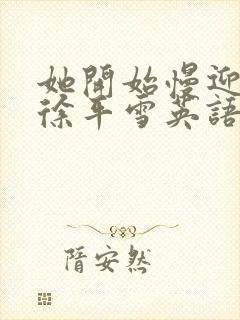 她開始慢迎
徐平雪英語
隋安然